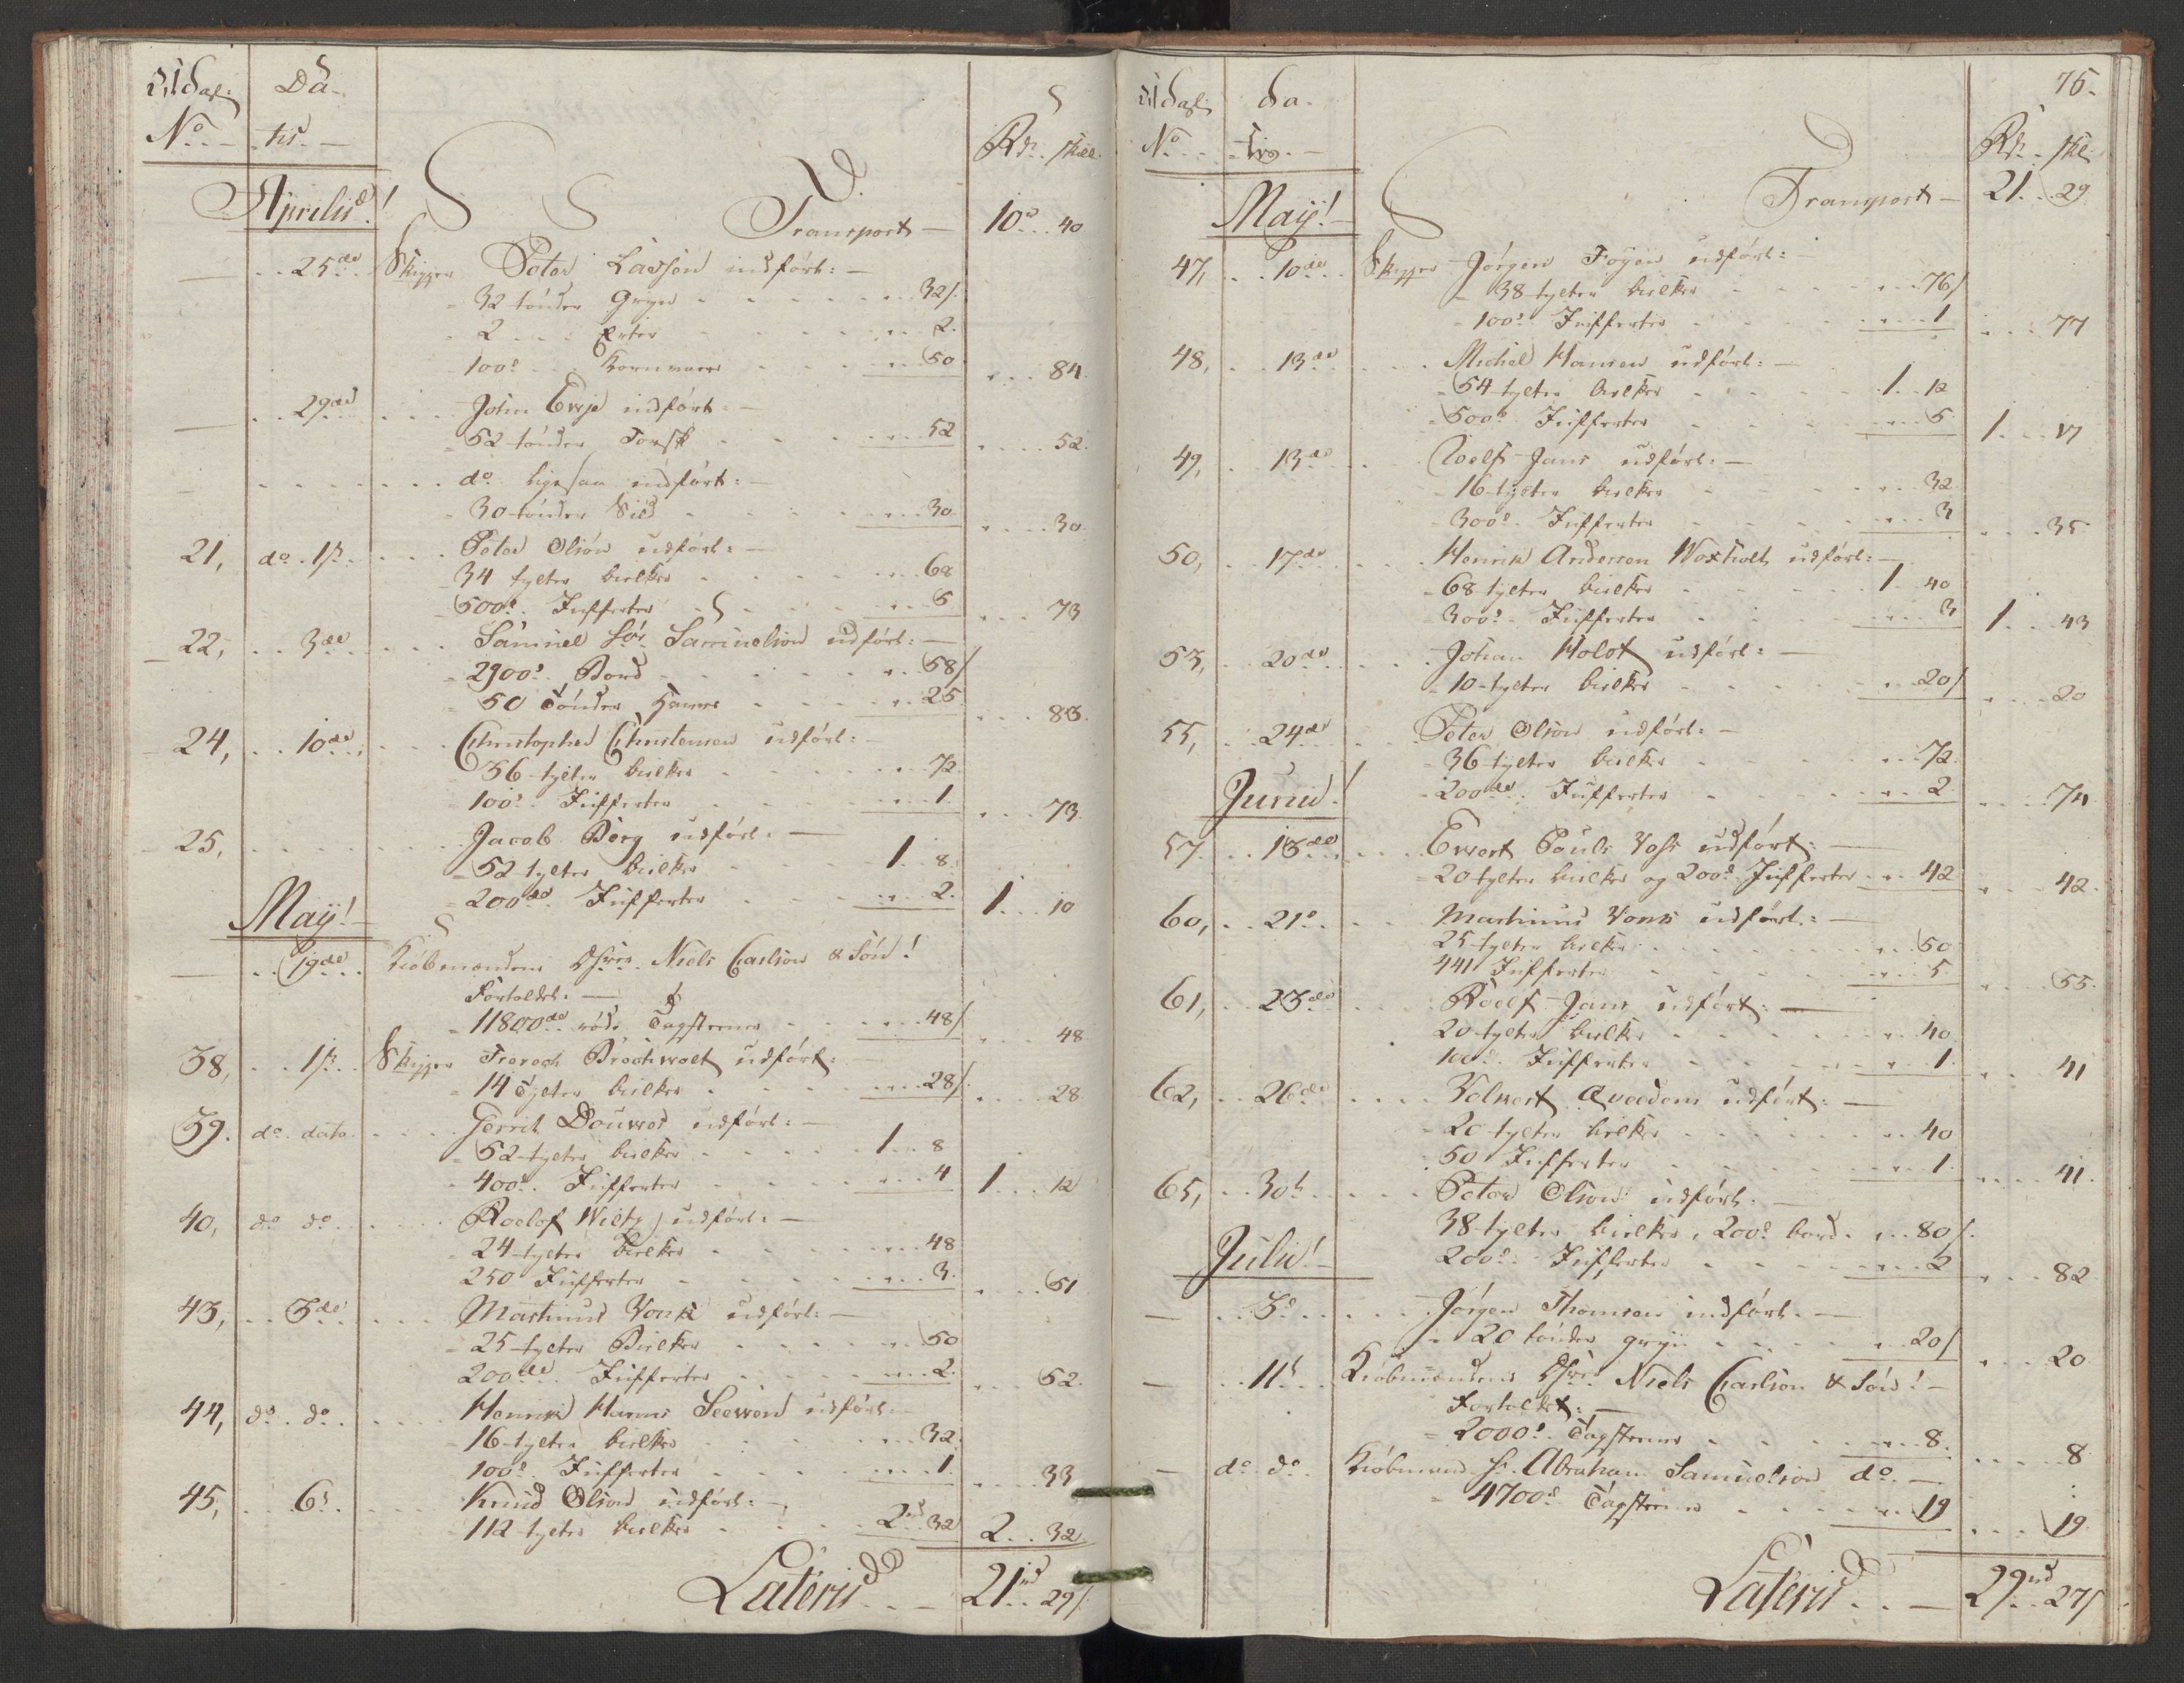 Udgaf: Da-
No.. - tis. -
Rdr. skill.
Aprilis!
Transport - 10.. 40
.. 25de.. Skipper Peter Lassen indført: -
32 tønder Gryn .. 32/.
2 .. Erter .. 2.
100d. Kornvarer .. 50 ... 84.
.. 29de ... John Evje indført: -
52 tønder Torsk ... 52 .... 52.
do ligesaa indført: -
30 tønder Sild ... 30 .... 30.
21, do. 1st. ... Peter Olsøn udført: -
34 tylter bielker ... 68
500d. Jufferter ... 5 ... 73
22, .. 3de ... Samuel Sør. Samuelsøn udført: -
2900d. Bord ... 58/
50 Tønder Hamp .. 25 ... 83.
24, .. 10de ... Christopher Christensen udført: -
36 tylter bielker ... 72
100d. Jufferter ... 1. ... 73.
25, ... Jacob Berg udført: -
52 tylter bielker 1.. 8.
200de. Jufferter ... 2. 1... 10
May! -
.. 19de... Kiøbmændene Niels Carlsøn & Søn!
Fortoldet: -
11800de røde Tagsteene ... 48/ .... 48
38, .. 1st.. Skipper Frerech Brochwolt udført:
14 Tylter bielker ... 28/. .... 28
39. do dato. ... Gerrit Douwes udført: -
52 tylter bielker .... 1.. 8
400d. Jufferter ... 4 1... 12
40, do do ... Roelof Wieltz udført: -
24 tylter bielker ... 48
250 Jufferter ... 3. .... 51
43, .. 3de ... Martinus Vonk udført: -
25 tylter Bielker .... 50
200de. Jufferter ... 2. ... 52.
44, do. do. ... Henrich Harms Seeword udført: -
16 tylter bielker ... 32.
100d. Jufferter ... 1. .... 33
45, .. 6d. ... Knud Olsøn udført: -
112 tylter bielker ... 2rd 32 2.. 32.
Lateris .. - 21rd. 29/.
76.
Udgaf: da.
No... - tis. -
Rdr. skl.
May! -
Transport - 21.. 29.
47, .. 10de.. Skipper Jørgen Foyen udført: -
38 tylter bielker .... 76/
100d. Jufferter .... 1 .... 77
48, .. 13de ... Michel Hansen udført: -
54 tylter bielker .. 1.. 12
500d. Jufferter ... 5 1... 17
49, .. 13de ... Roelf Jans udført: -
16 tylter bielker ... 32
300d. Jufferter ... 3 .... 35
50, .. 17de ... Henrik Andersen Woxholt udført: -
68 tylter bielker ... 1. 40
300d. Jufferter ... 3 1... 43
53, .. 20de ... Johan Holst udført: -
10 tylter bielker ... 20/ .... 20
55, .. 24de ... Peter Olsøn udført: -
36 tylter bielker ... 72.
200de. Jufferter ... 2 .... 74
Junii!
57. .. 13de ... Ewert Pauls Vohs udført: -
20 tylter bielker og 200d. Jufferter .. 42 ... 42.
60, .. 21d. ... Martinus Vonk udført: -
25 tylter bielker ... 50
441 Jufferter ... 5. .... 55.
61, .. 23de ... Roelf Jans udført: -
20 tylter bielker ... 40
100d. Jufferter ... 1. ... 41
62, .. 26de ... Volkert Qvedens udført: -
20 tylter bielker ... 40
50 Jufferter ... 1. .... 41.
65, .. 30te ... Peter Olsøn udført: -
38 tylter bielker, 200d. bord. ... 80/.
200d. Jufferter ... 2 ... 82
Julii! -
- .. 3d. ... Jørgen Thomsen indført. -
20 tønder gryn ... 20/ .... 20
- .. 11te. Kiøbmændene Niels Carlsøn & Søn! -
Fortoldet: -
2000d. Tagsteene ... 8. .... 8
- do do. Kiøbmand Sr. Abraham Samuelsøn do. -
4700d. Tagsteene ... 19 ... 19.
Lateris .. - 29rd. 27/